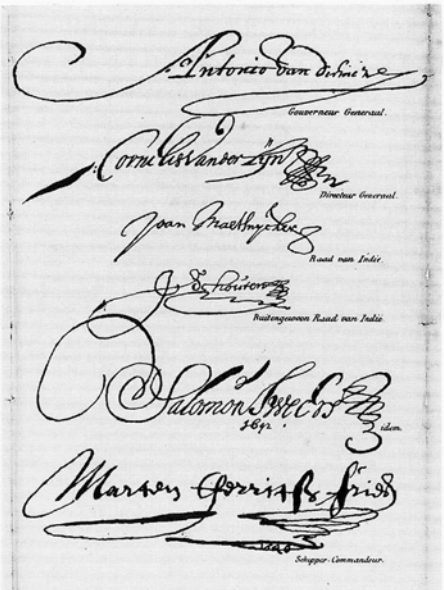 Antonio van diemen
Gouverneur Generaal.
Cornelis vander Lijn
Directeur Generaal.
Joan Maetsuycker
Raad van Indië.
Buitengewoon Raad van Indië
Salomon Sweers
1642.
idem.
Marten Gerritsz fries
Schipper-Commandeur.